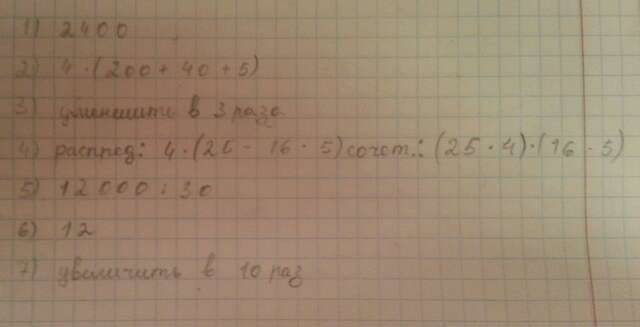 1) 2400
2) 4·(200 + 40 + 5)
3) уменшить в 3 раза
4) распред: 4·(25 - 16 · 5) сочет.: (25 · 4)·(16 · 5)
5) 12000 : 30
6) 12
7) увеличить в 10 раз